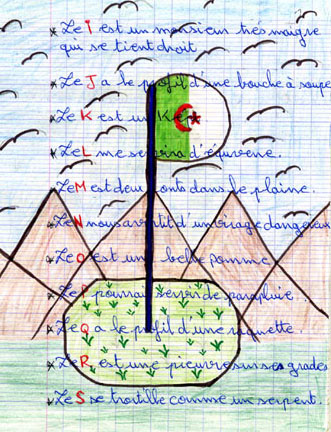 * Le I est un monsieur trés maigre
qui se tient droit
* Le J a le profil d'une bouche à soupe
* Le K est un Képi
* Le L me servira d'équerre.
* Le M est deux monts dans le plaine.
* Le N nous avertit d'un virage dangereux
* Le O est un belle pomme
* Le P pourrai servir de parapluie.
* Le Q a le profil d'une raquette.
* Le R est une pieuvre sur ses grades
* Le S se tortille comme un serpent.